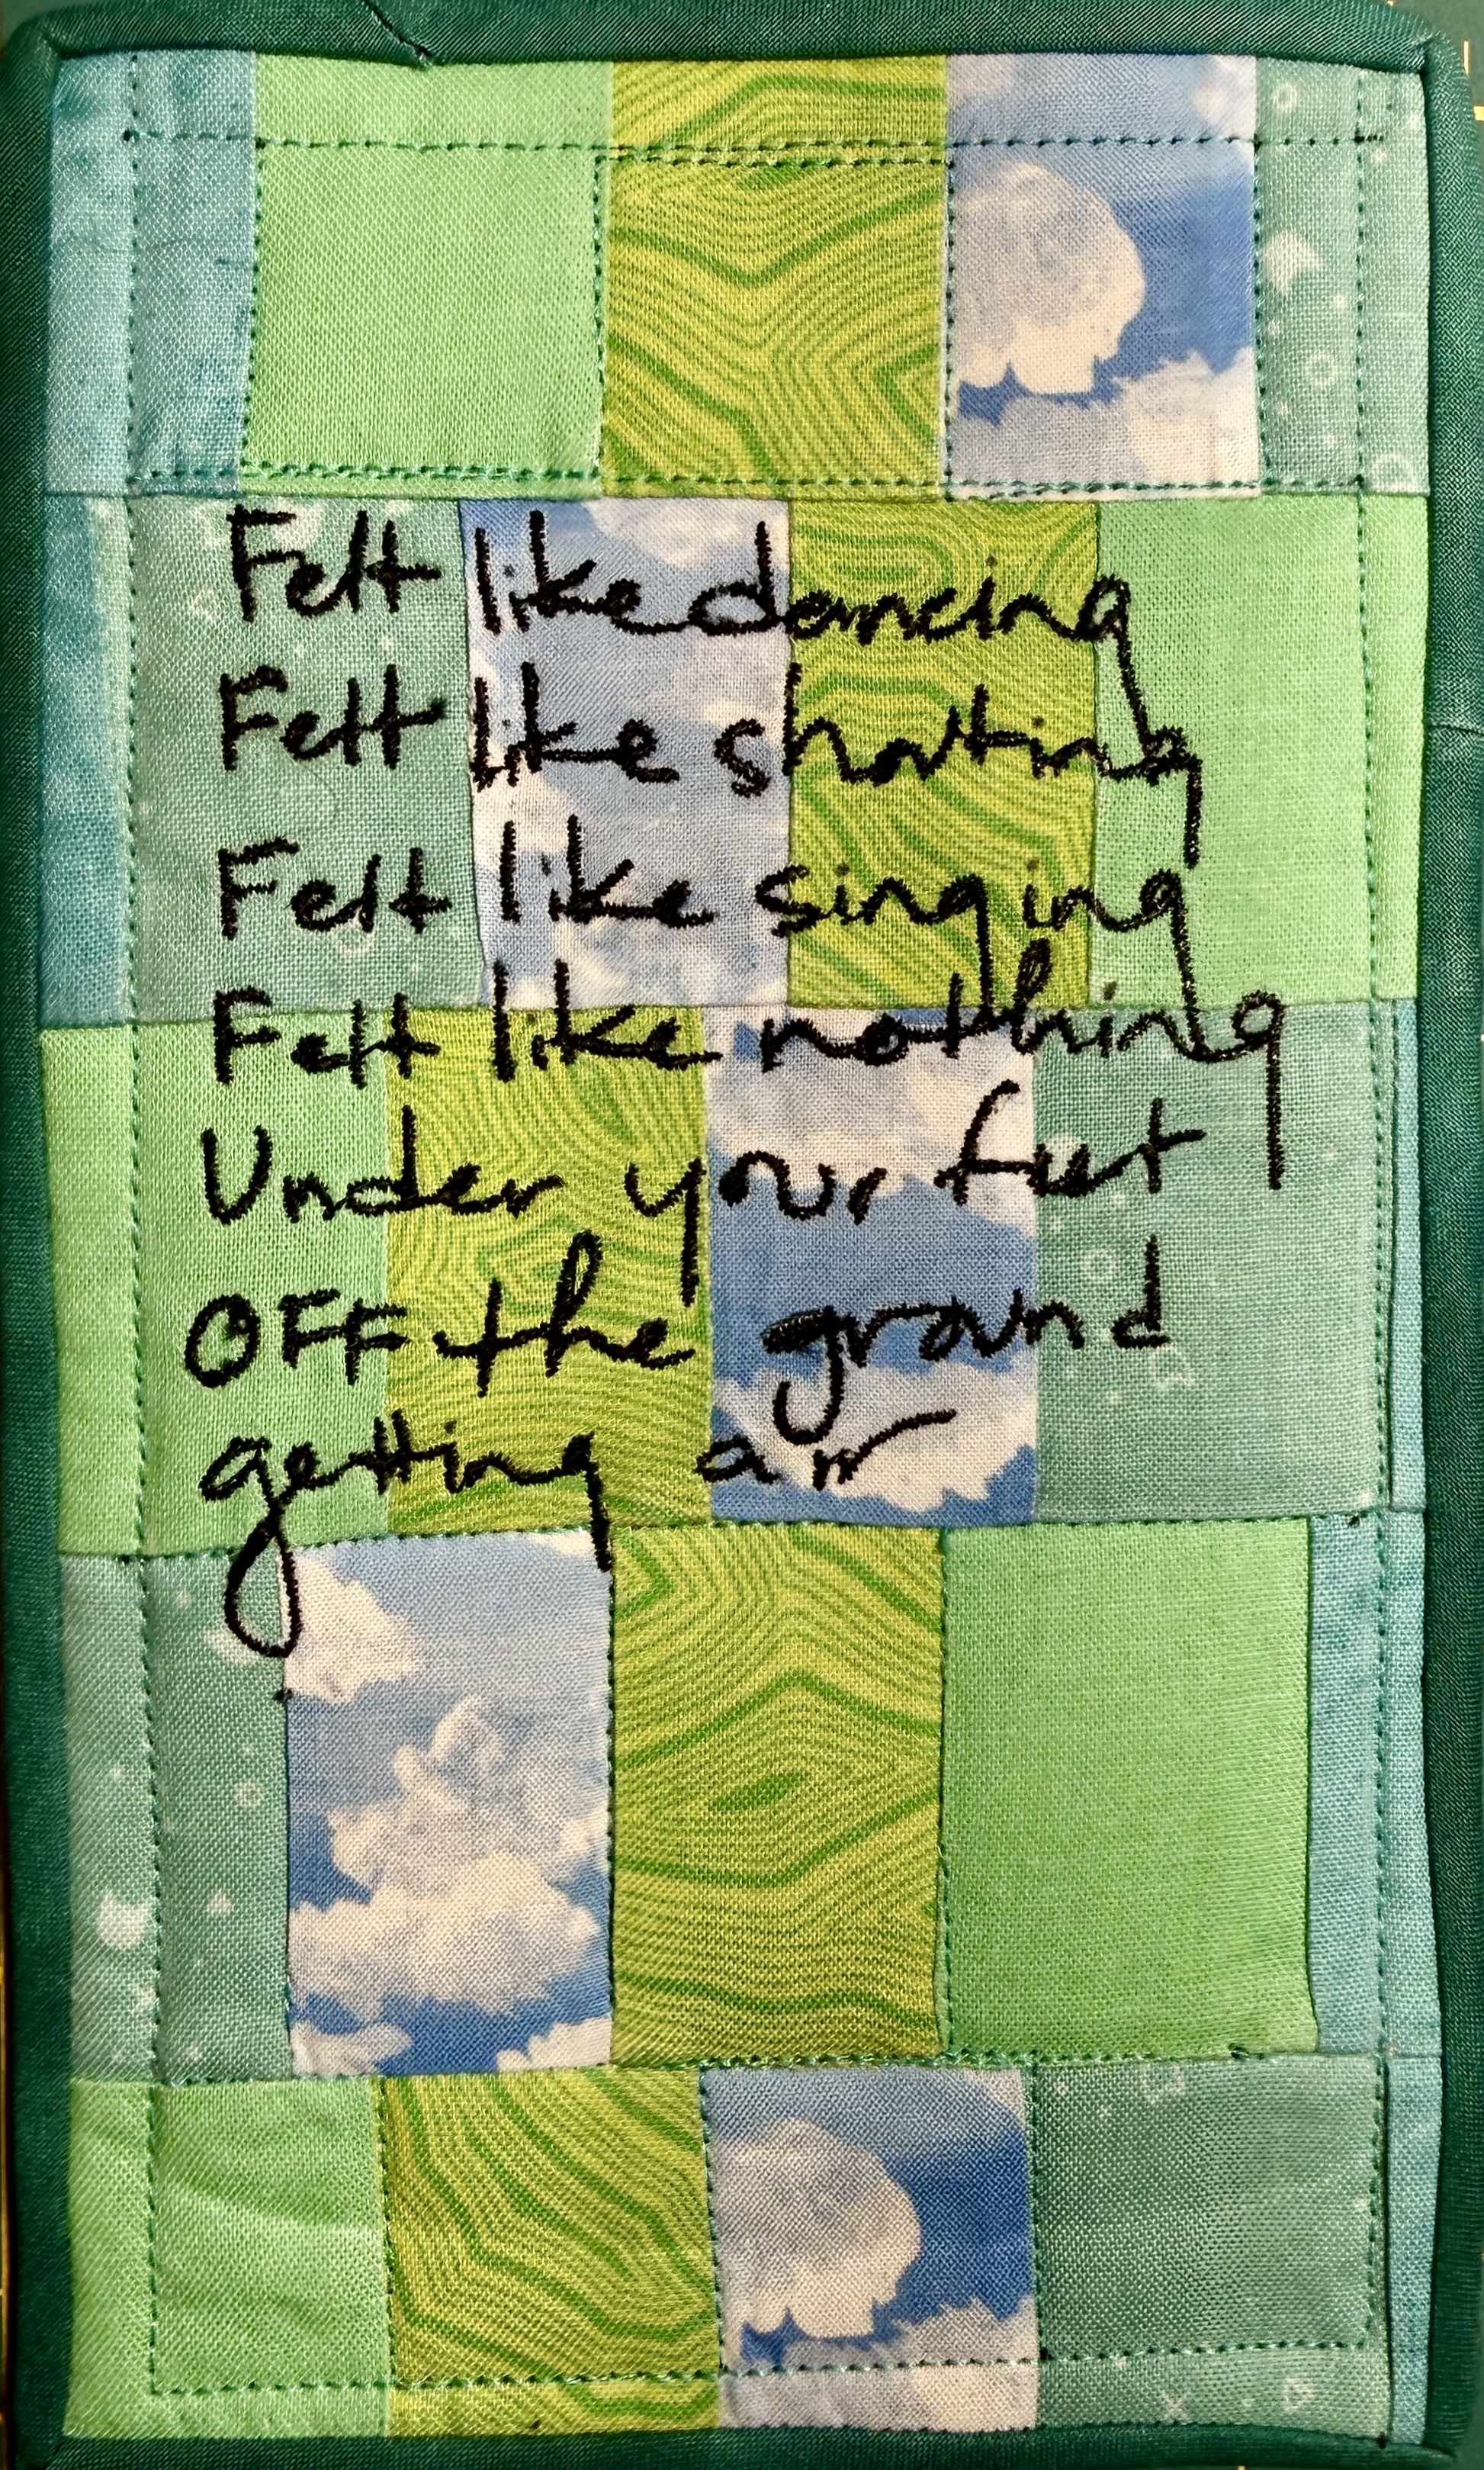 Felt like dancing
Felt like skating
Felt like singing
Felt like nothing
Under your feet
OFF the ground
getting air